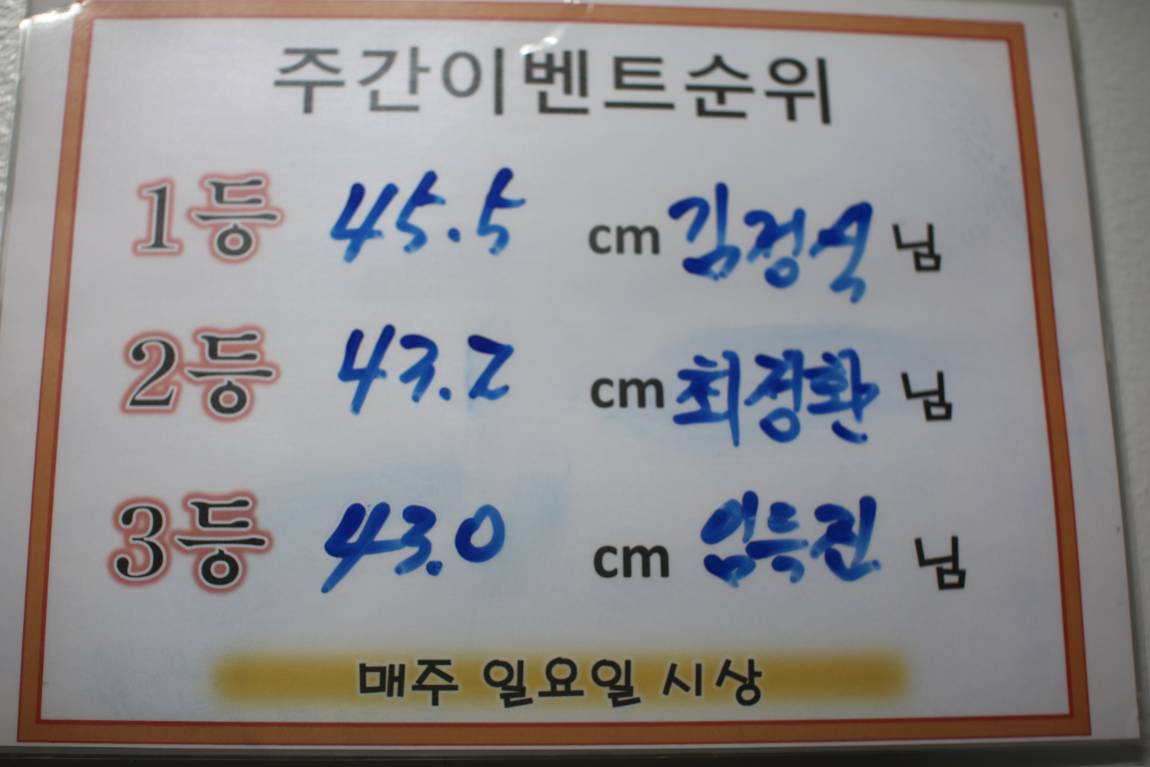 주간이벤트순위
1등 45.5 cm 김정석 님
2등 43.2 cm 최정환 님
3등 43.0 cm 임득진 님
매주 일요일 시상